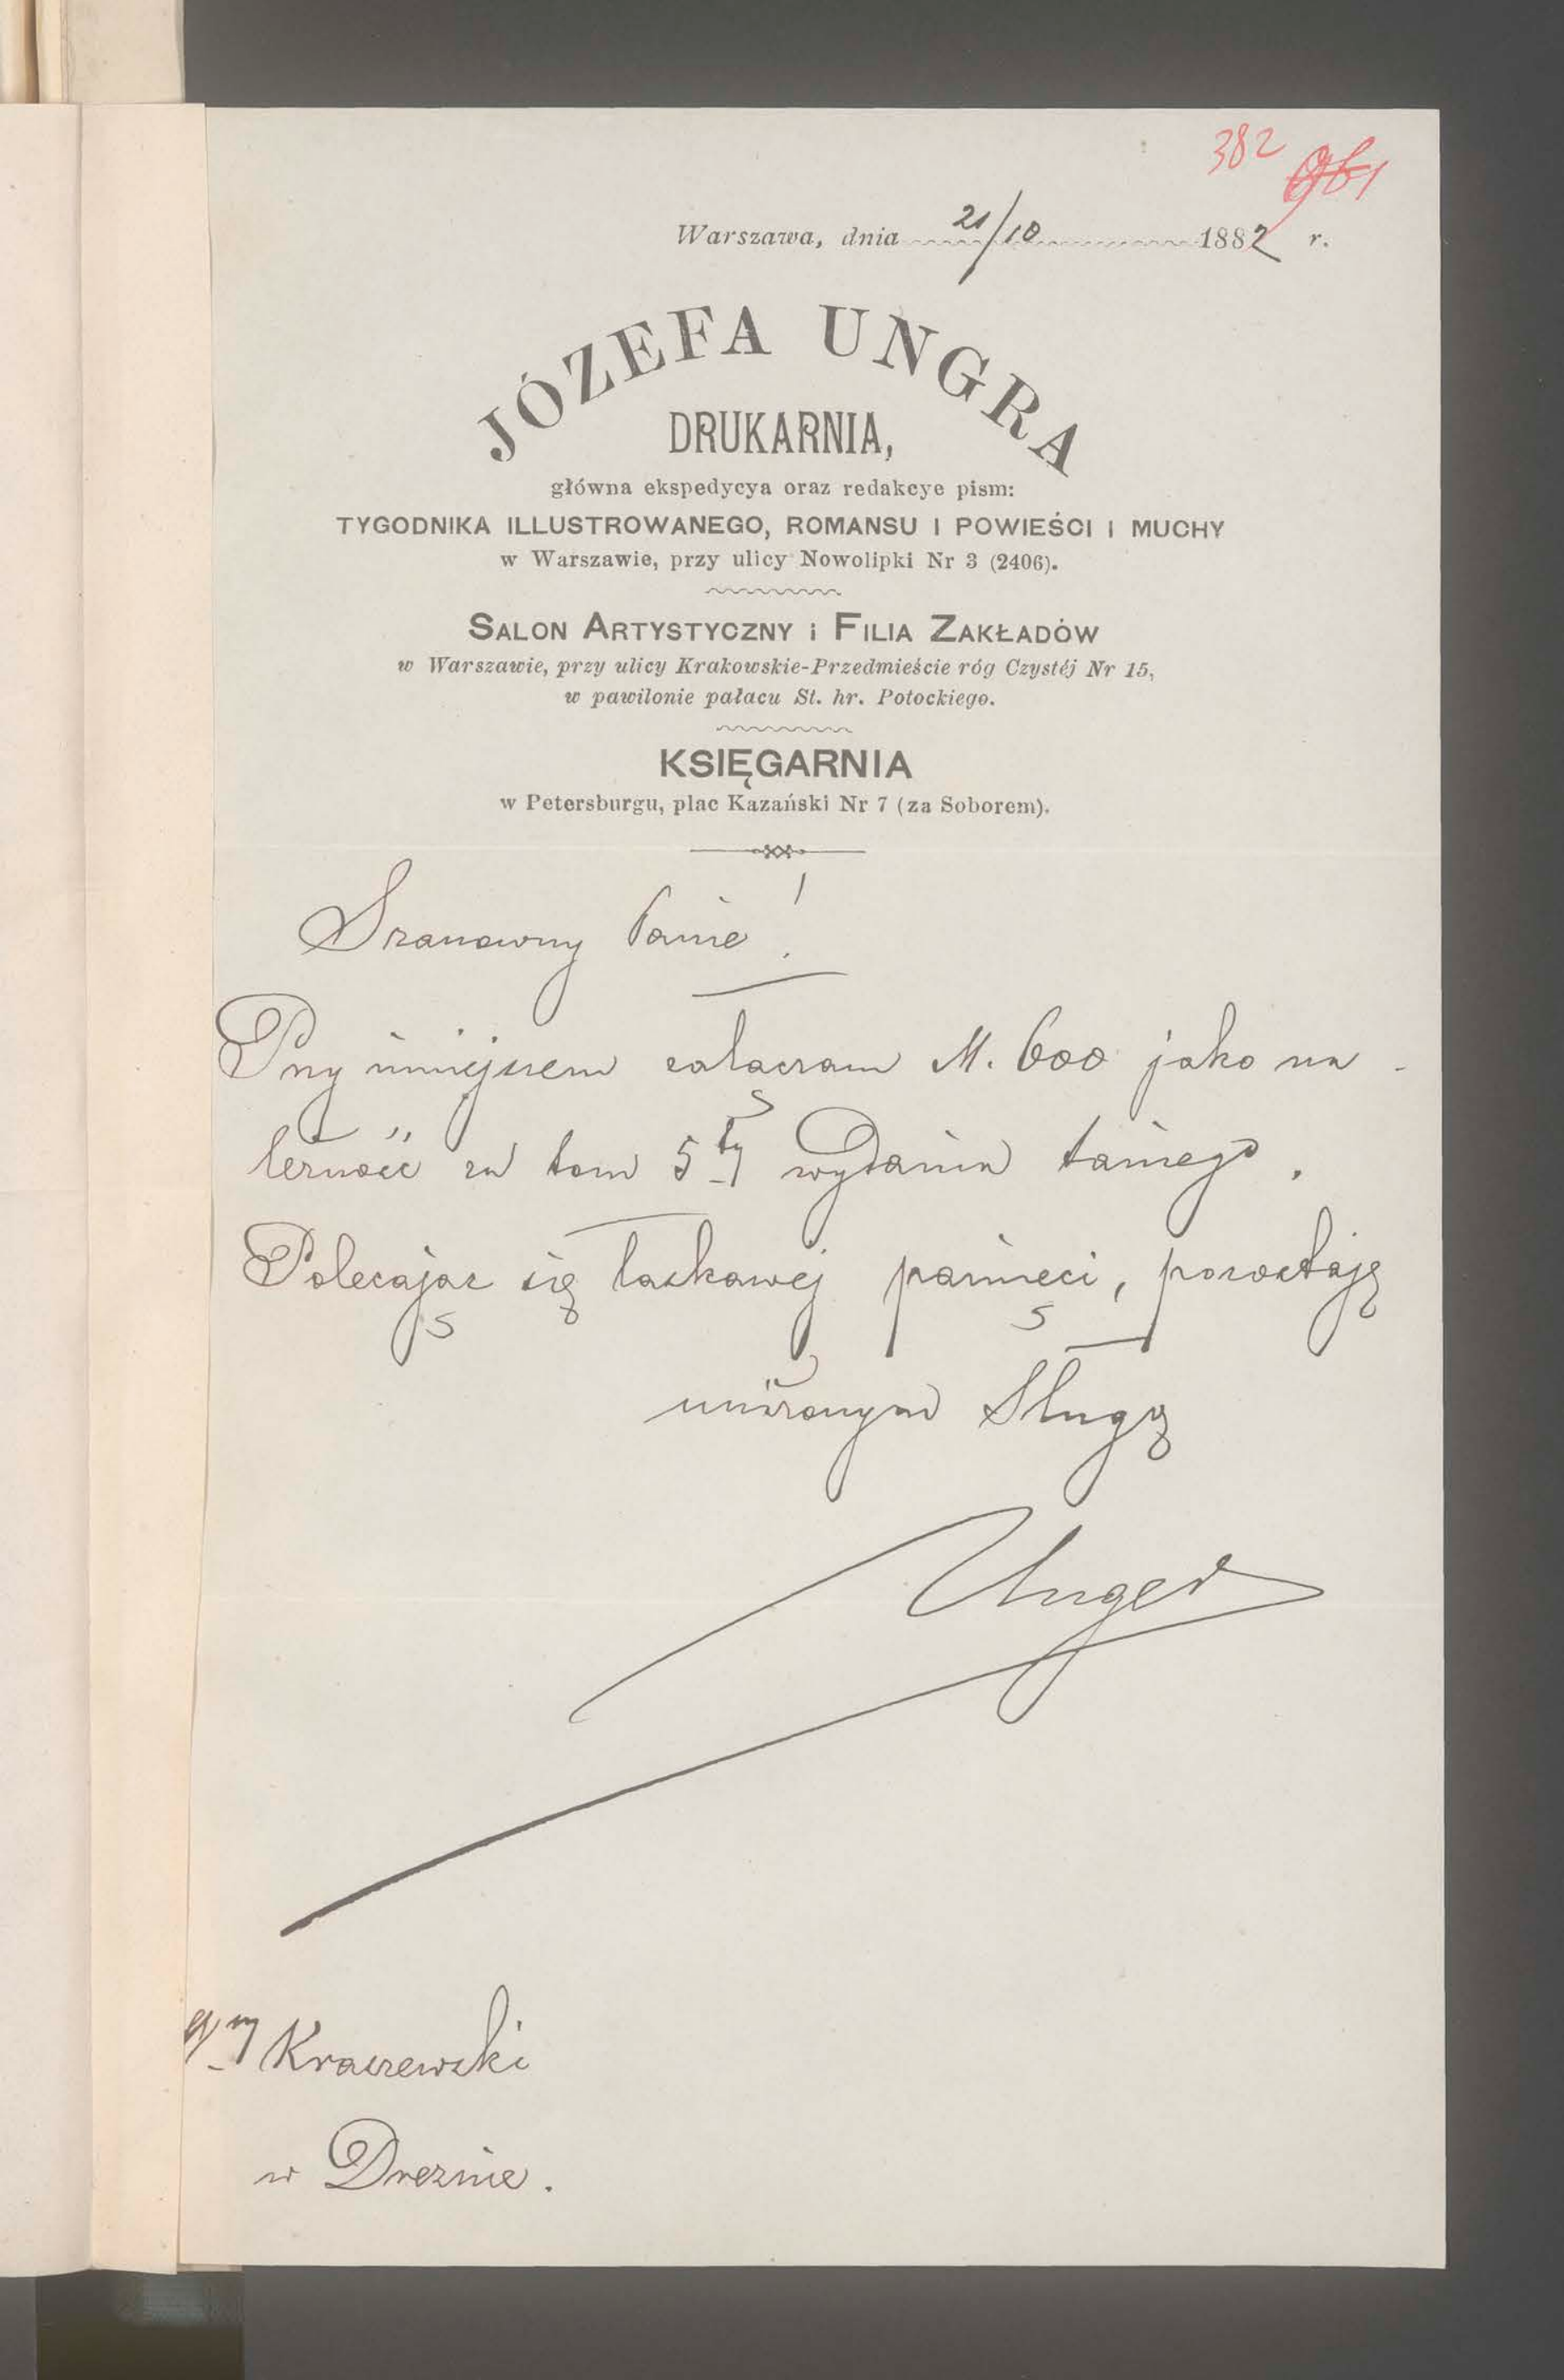 382
Warszawa, dnia 21/10 1882 r.
JÓZEFA UNGRA
DRUKARNIA,
główna ekspedycya oraz redakcye pism:
TYGODNIKA ILLUSTROWANEGO, ROMANSU I POWIEŚCI i MUCHY
w Warszawie, przy ulicy Nowolipki Nr 3 (2406).
SALON ARTYSTYCZNY i FILIA ZAKŁADÓW
w Warszawie, przy ulicy Krakowskie-Przedmieście róg Czystéj Nr 15,
w pawilonie pałacu St. hr. Potockiego.
KSIĘGARNIA
w Petersburgu, plac Kazański Nr 7 (za Soborem).
Szanowny Panie!
Przy niniejszem załączam M. 600 jako na-
leżność za tom 5ty wydania taniego.
Polecając się łaskawej pamięci, pozostaję
uniżonym Sługą
Unger
Kraszewski
w Dreznie.